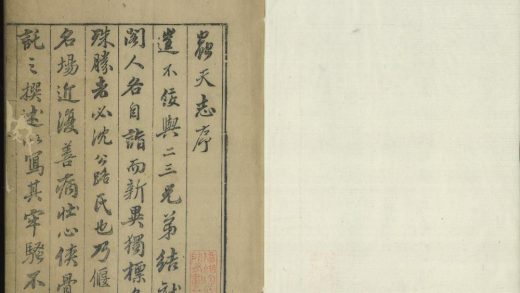 蟲天志序
不佞與二三兄弟結
人各自詣而新異獨標
殊勝者必沈公路氏也乃偃
名場近復善病壯心俠骨
託之撰述以寫其牢騷不